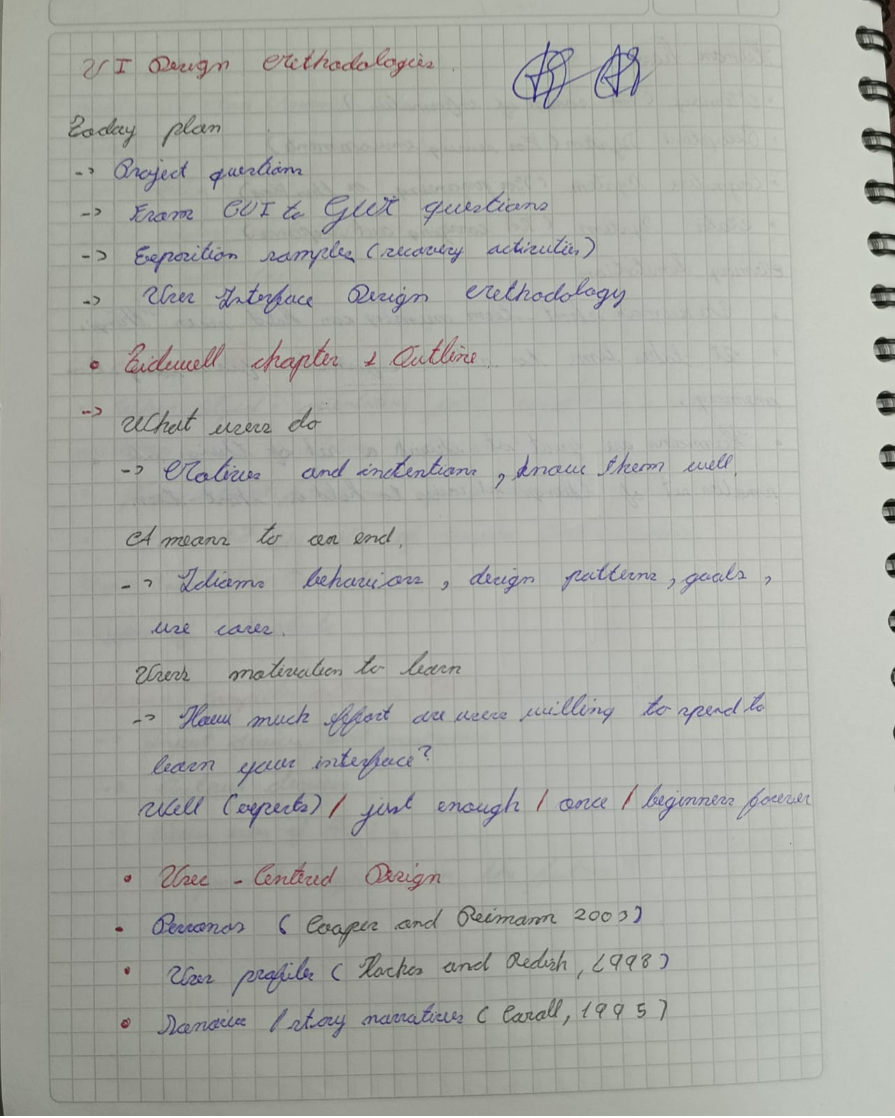 UI Design Methodologies
Today plan
-> Project questions
-> From CUI to GUI questions
-> Exposition samples (recovery activities)
-> User Interface Design Methodology
• Tidwell chapter 1 Outline
-> What users do
-> Motives and intentions, know them well.
A means to an end.
-> Idioms behaviors, design patterns, goals,
use cases.
Users motivation to learn
-> How much effort are users willing to spend to
learn your interface?
Well (experts) / just enough / once / beginners forever
• User - Centered Design
• Personas (Cooper and Reimann 2003)
• User profiles (Hackos and Redish, 1998)
• / story narratives (Caroll, 1995)